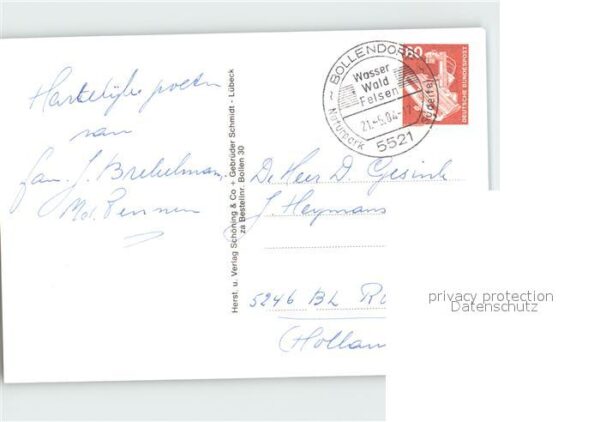 Hartelijke groeten
van
fam. J. Brekelmans
Herst. u. Verlag Schöning & Co + Gebrüder Schmidt - Lübeck
za Bestellnr. Bollen 30
BOLLENDORF
Wasser
Wald
Felsen
Naturpark Südeifel
21.-5.84-17
5521
60
DEUTSCHE BUNDESPOST
De Heer D. Gesink
J. Heymans
5246 BL R
(Hollan
privacy protection
Datenschutz